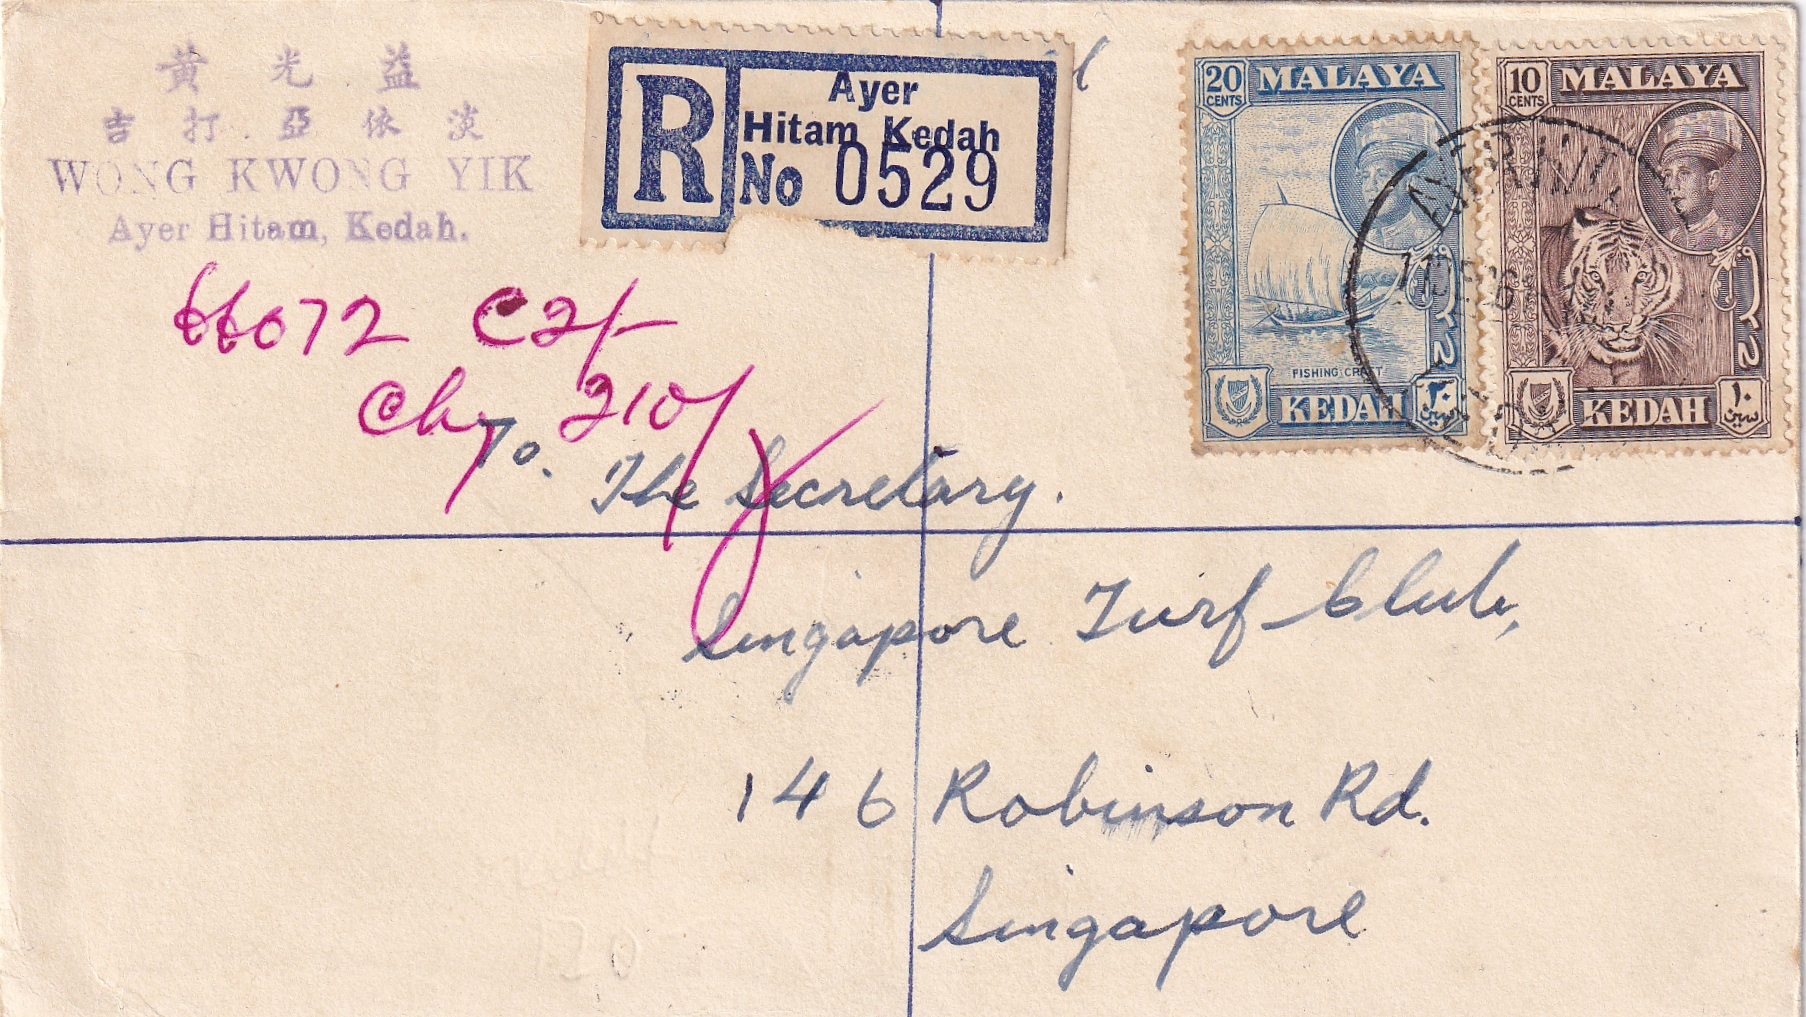 黃光益
吉打亞依淡
WONG KWONG YIK
Ayer Hitam, Kedah.
R
Ayer
Hitam Kedah
No 0529
20
CENTS
MALAYA
FISHING CRAFT
KEDAH
٢٠
سين
10
CENTS
MALAYA
KEDAH
١٠
سين
66072 C2/-
Chq 210/
To.
The Secretary.
Singapore Turf Club,
146 Robinson Rd.
Singapore